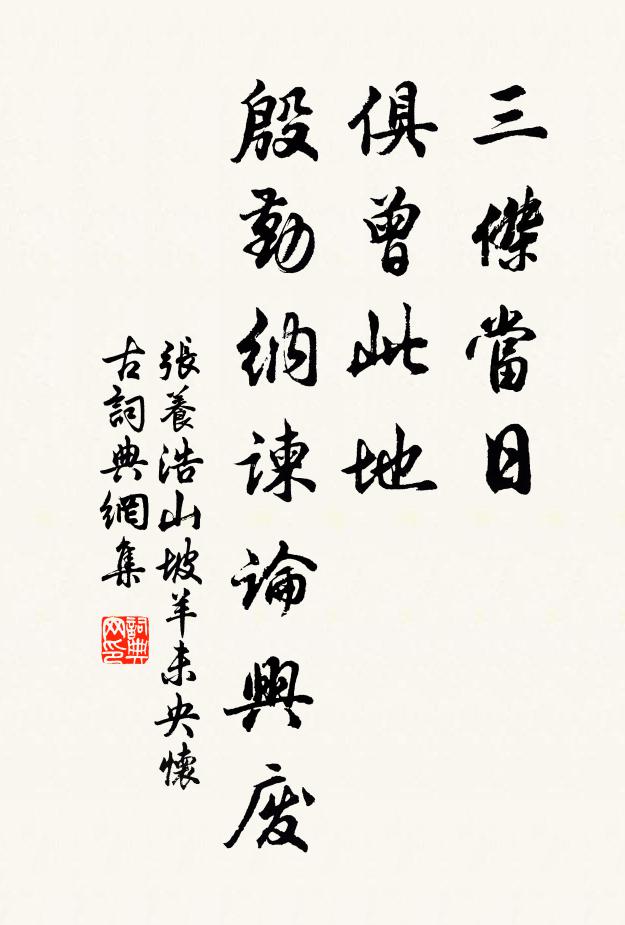 三傑當日
俱曾此地
殷勤納諫論興廢
張養浩山坡羊未央懷
古詞典網集
詞典網印